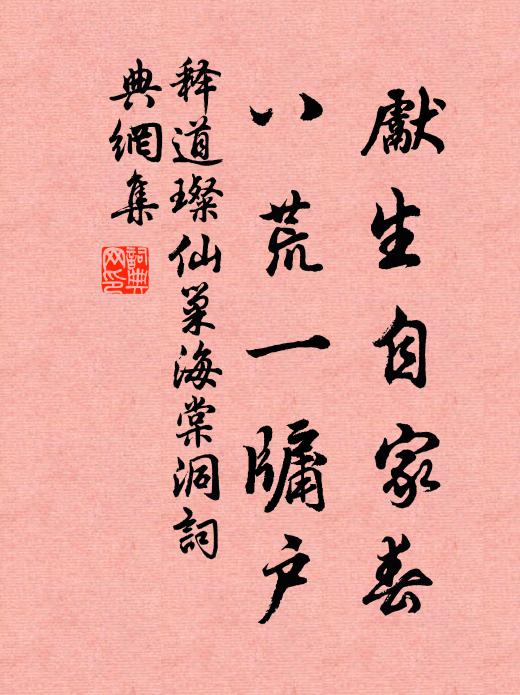 獻生自家春
八荒一牖户
释道璨仙巢海棠洞詞
典網集
詞典
网印